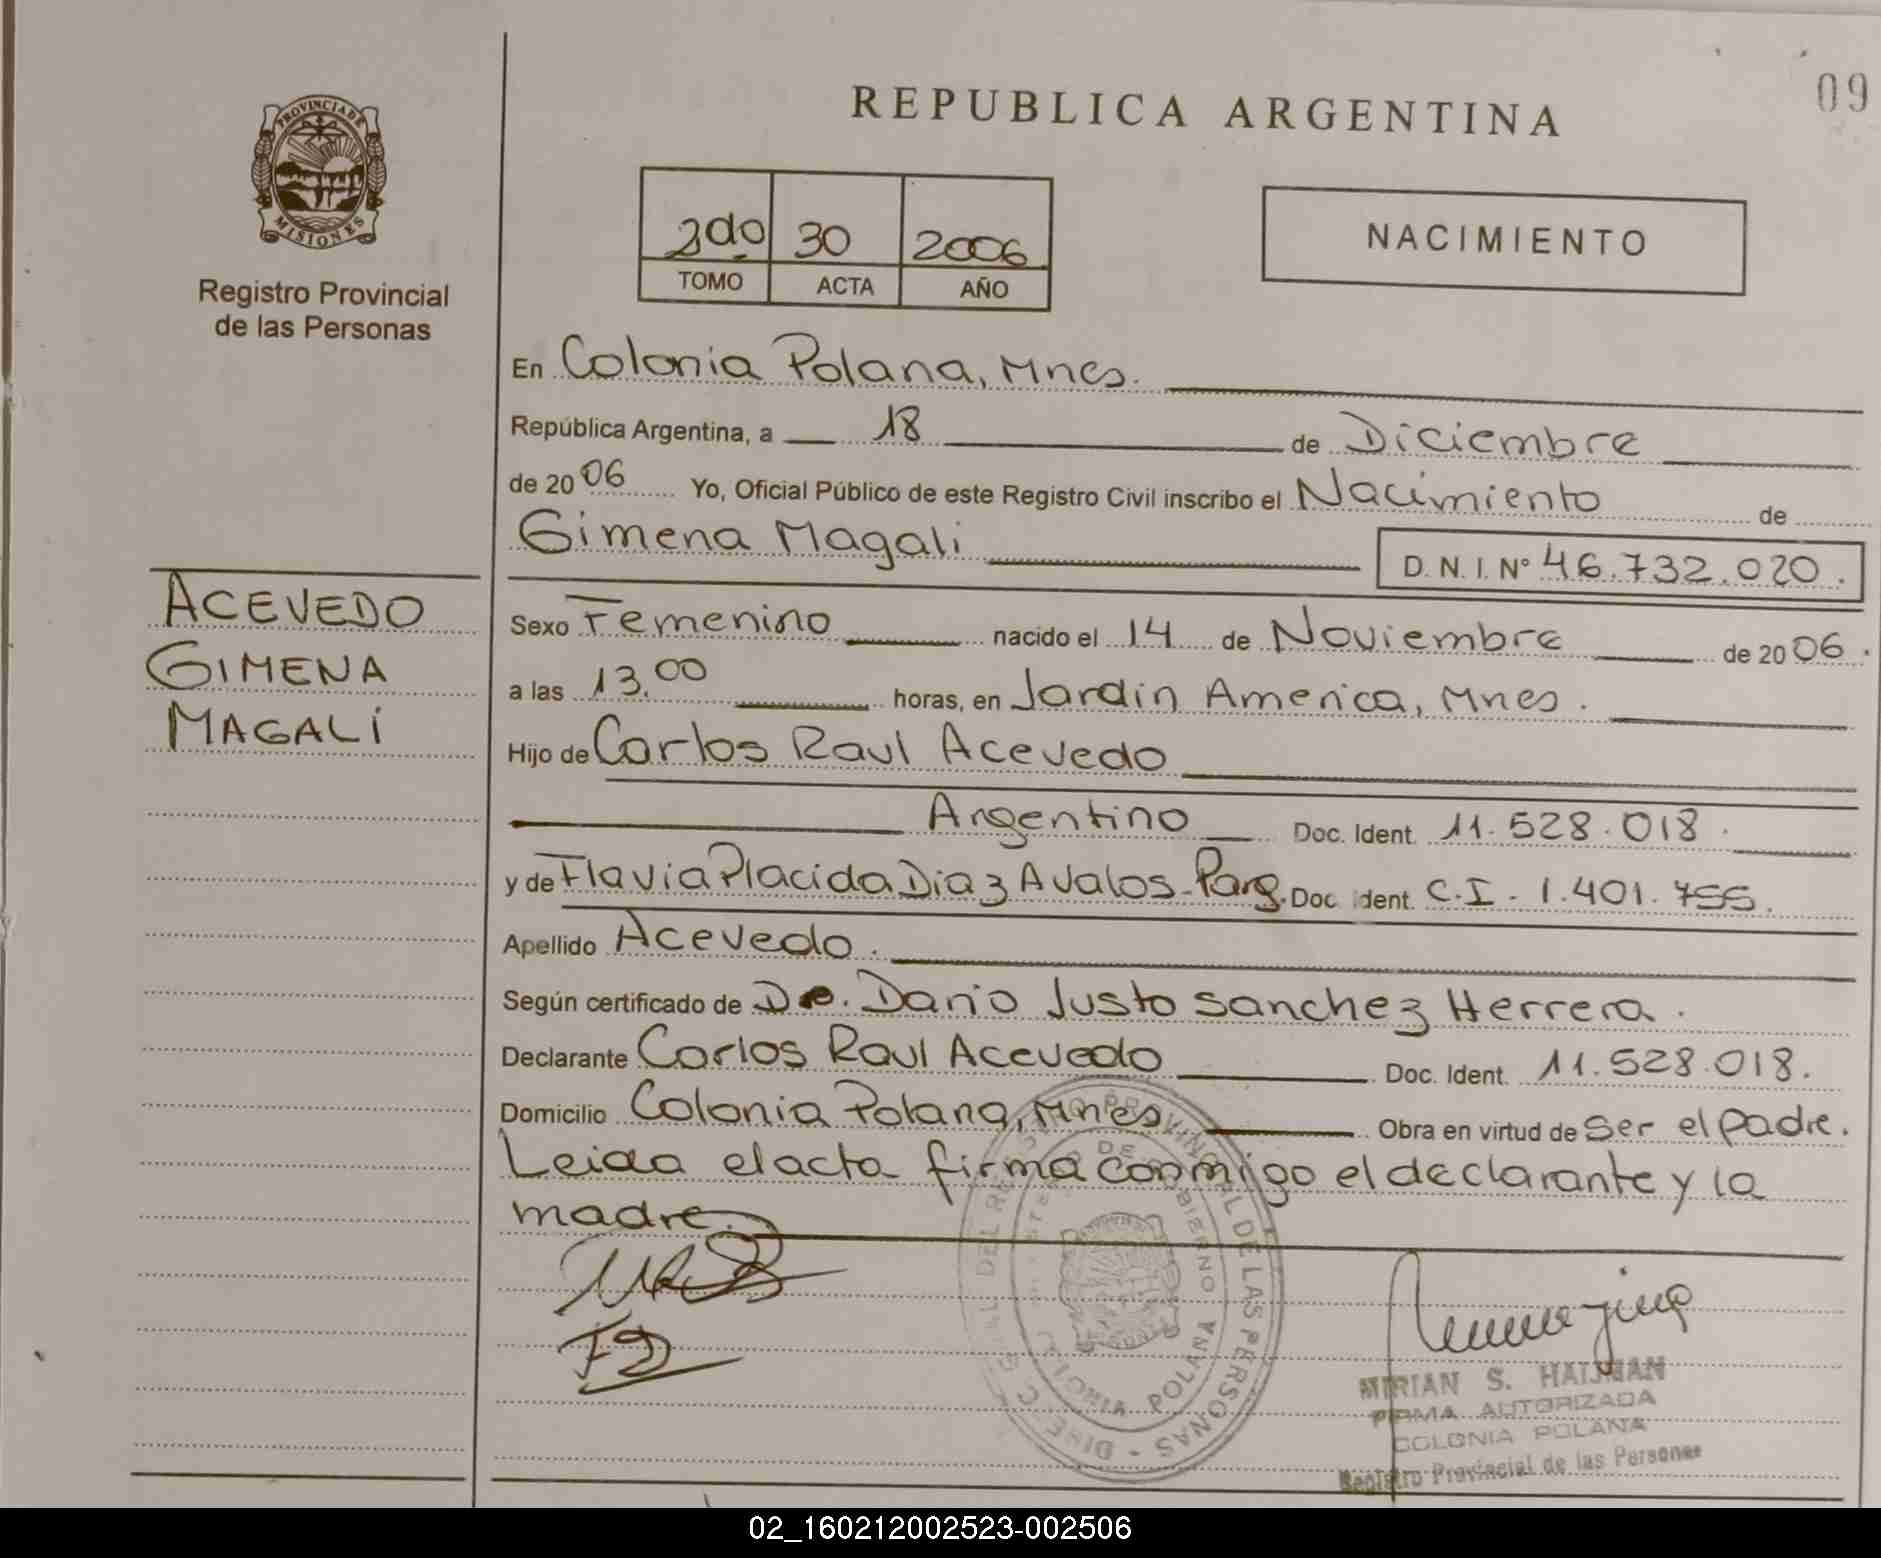 REPUBLICA ARGENTINA
09
PROVINCIA DE
MISIONES
Registro Provincial
de las Personas
2do 30 2006
TOMO ACTA AÑO
NACIMIENTO
En Colonia Polana, Mnes.
República Argentina, a 18 de Diciembre
de 2006 Yo, Oficial Público de este Registro Civil inscribo el Nacimiento de
Gimena Magali D. N. I. Nº 46.732.020.
ACEVEDO
GIMENA
MAGALI
Sexo Femenino nacido el 14 de Noviembre de 2006.
a las 13.00 horas, en Jardin America, Mnes.
Hijo de Carlos Raul Acevedo
Argentino Doc. Ident. 11.528.018.
y de Flavia Placida Diaz Avalos-Parg. Doc ident. C.I. 1.401.755.
Apellido Acevedo.
Según certificado de Dr. Dario Justo Sanchez Herrera.
Declarante Carlos Raul Acevedo Doc. Ident. 11.528.018.
Domicilio Colonia Polana, Mnes Obra en virtud de ser el padre.
Leida el acta firma conmigo el declarante y la
madre.
FD
MIRIAN S. HAIJMAN
FIRMA AUTORIZADA
COLONIA POLANA
Registro Provincial de las Personas
02_160212002523-002506